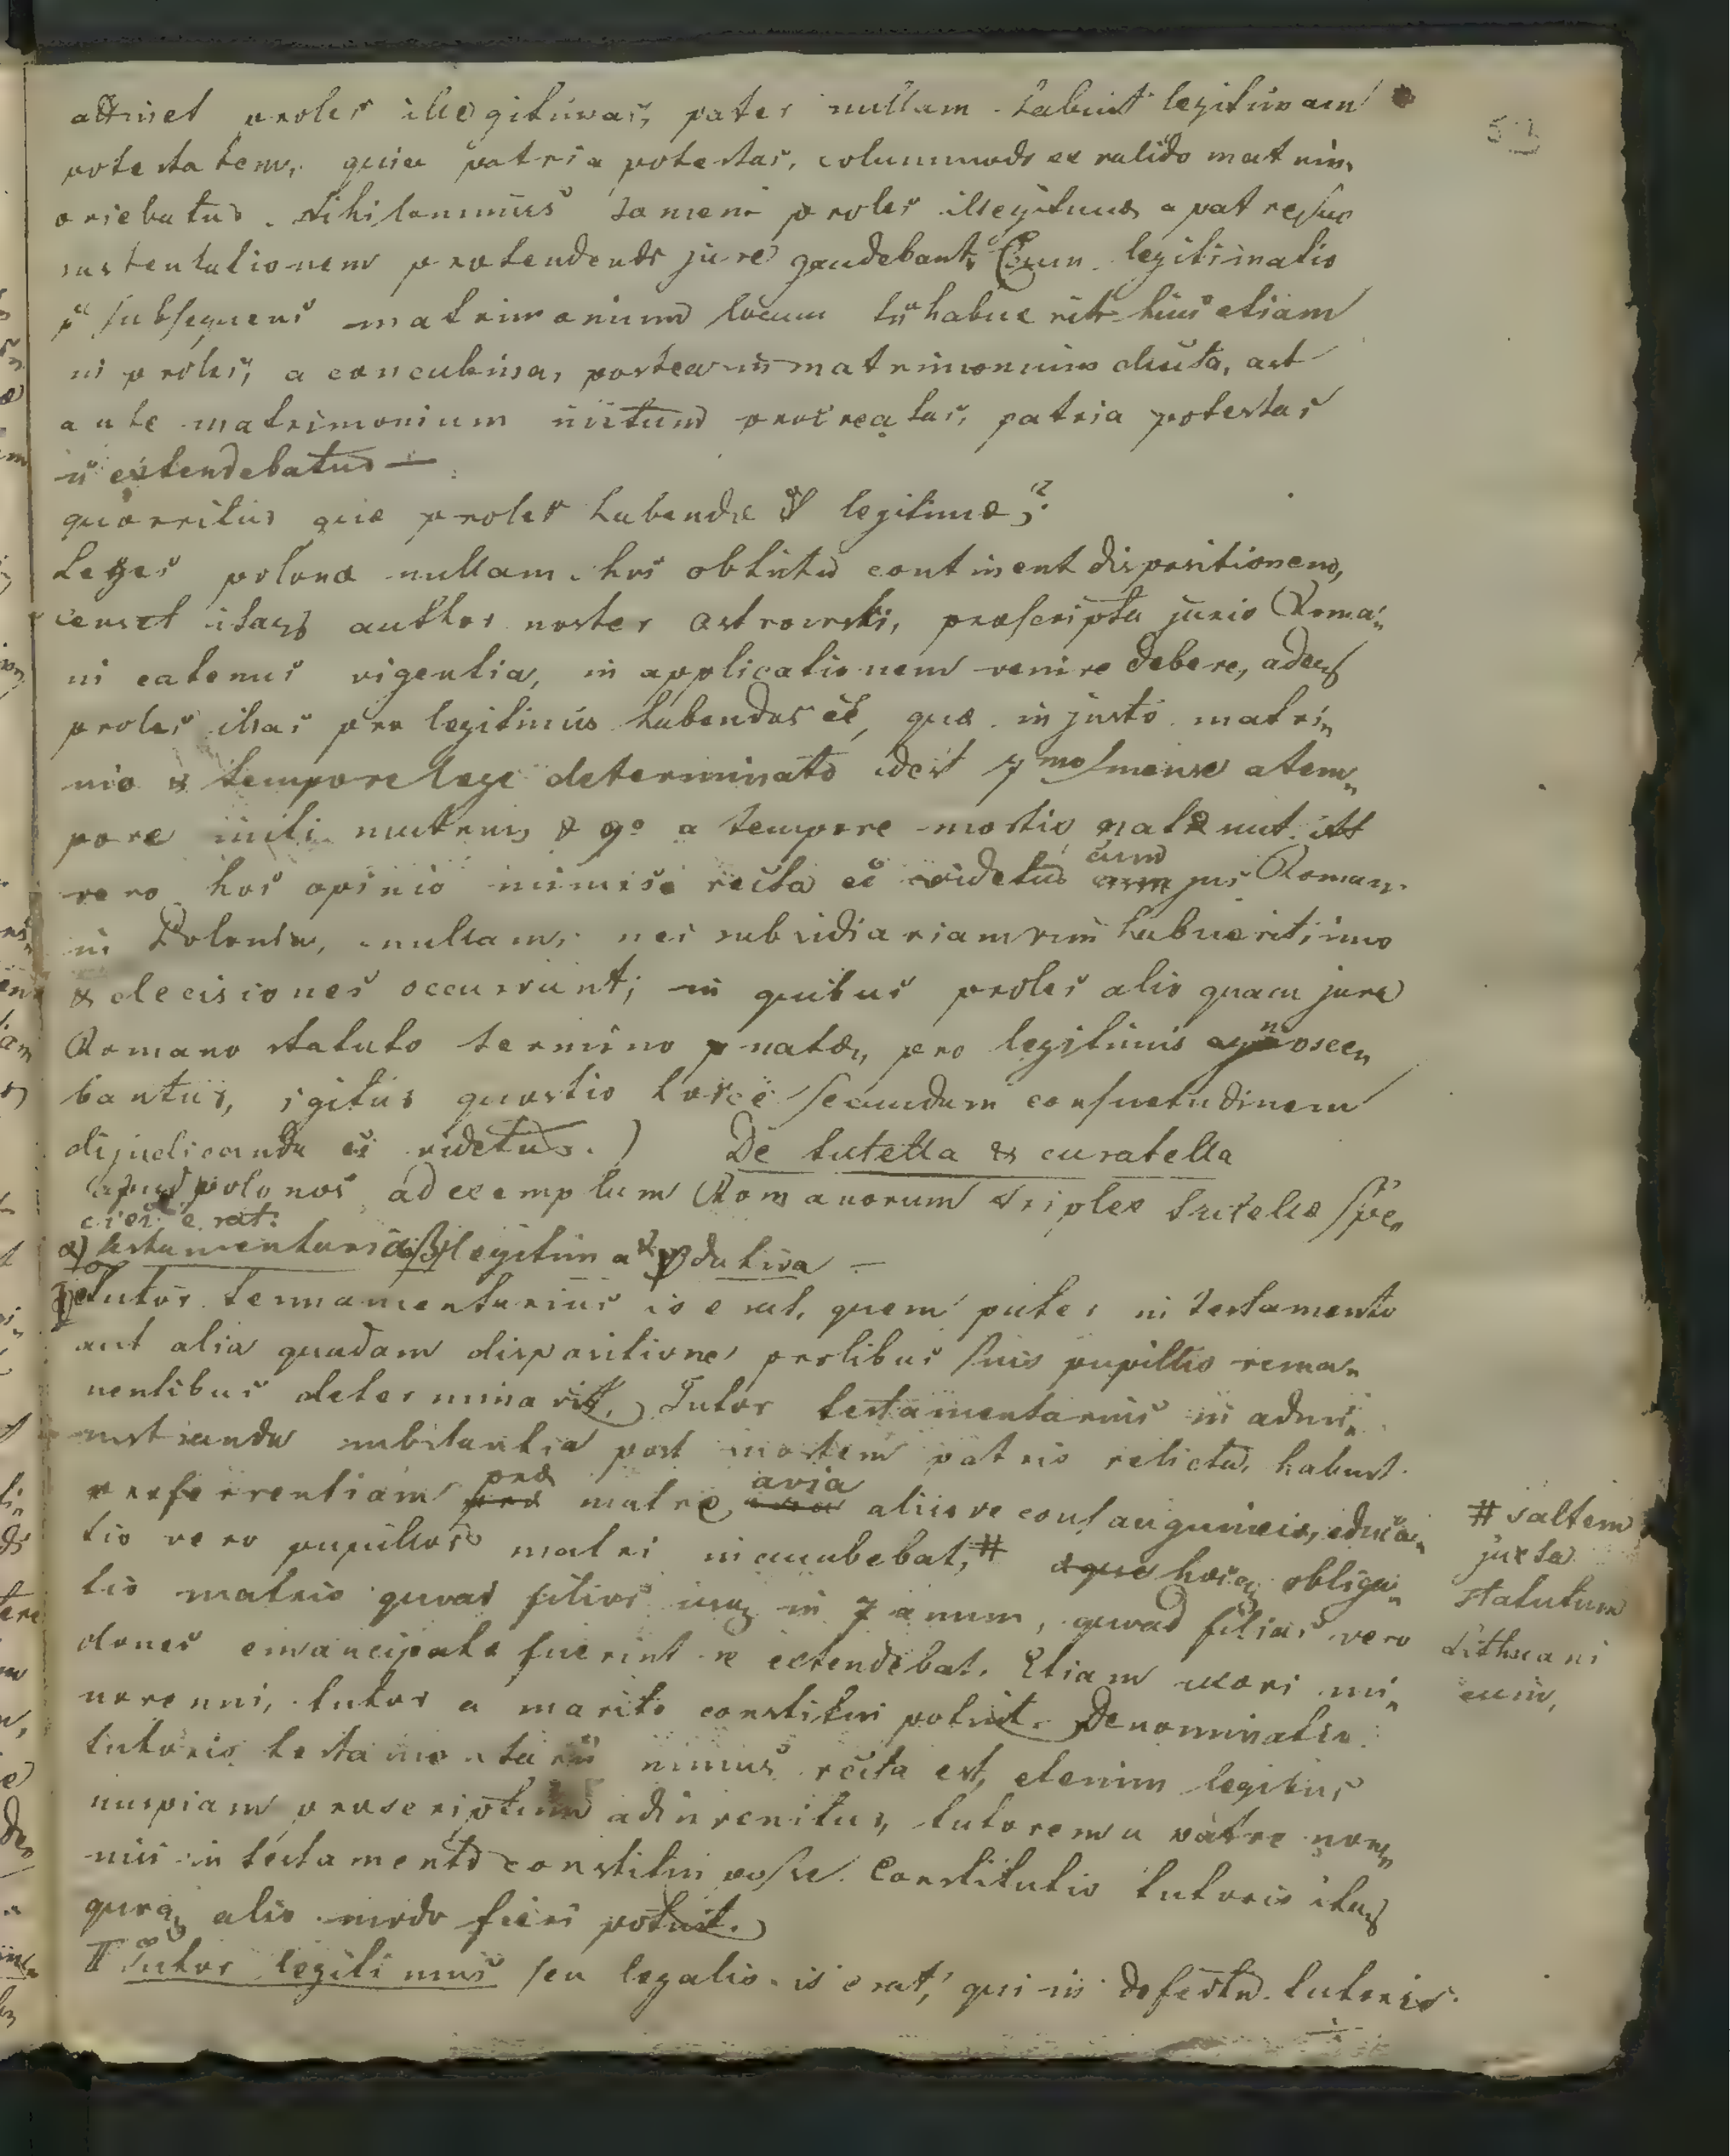 attinet proles illegitimas, pater nullam habuit legitimam
potestatem, quia patria potestas, solummodo ex valido matrim.
oriebatur. Nihilominus tamen proles illegitimæ a patre suo
sustentationem prætendendi jure gaudebant. Cum legitimatio
p subsequens matrimonium locum n habuerit hinc etiam
in proles, a concubina, postea in matrimonium ducta, ast
ante matrimonium initum procreatas, patria potestas
n extendebatur —
quærritur quæ proles habendæ st legitimæ?
Leges polonæ nullam hoc obtutu continent dispositionem,
censet itaq author noster Ostrowski, præscripta juris Roma„
ni eatenus vigentia, in applicationem venire debere, adeoq
proles illas pro legitimis habendas eē, quæ in justo matri„
nio & tempore lege determinato idest 7mo mense a tem„
pore initi matrim & 9o a tempore mortis natæ sunt. Ast
vero hæc opinio minime recta eē videtur cum jus Roman.
in Polonia, nullam, nec subsidiariam vim habuerit, imo
& decisiones occurrunt, in quibus proles alio quam jure
Romano statuto termino natæ, pro legitimis agnoscen„
bantur, igitur quæstio hæcce secundum consuetudinem
dijudicanda eē videtur.) De tutella & curatella
apud polonos ad exemplum Romanorum triplex tutelæ spe„
cies erat:
α) testamentaria β) legitima & γ) dativa —
I Tutor temnamentarius is erat, quem pater in testamento
aut alia quadam dispositione prolibus suis pupillis rema„
nentibus determinavit. Tutor testamentarius in admi„
nistranda substantia post mortem patris relicta, habuit
præferrentiam præ matre, avia aliisve consanguineis, educa„
tio vero pupillor matri incumbebat, # hæcq obliga„
tio matris quoad filios usq in 7 annum, quoad filias vero
donec emancipatæ fuerint se extendebat. Etiam uxori mi„
norenni, tutor a marito constitui potuit. Denominatio
tutoris testamentarii minus recta est, etenim legibus
nuspiam præscriptum adinvenitur, tutorem a patre non„
nisi in testamento constitui posse. Constitutio tutoris itaq
quoq alio modo fieri potuit.
II Tutor legitimus seu legalis is erat, qui in defectu tutoris
# saltem
juxta
statutum
Lithuani
cum,